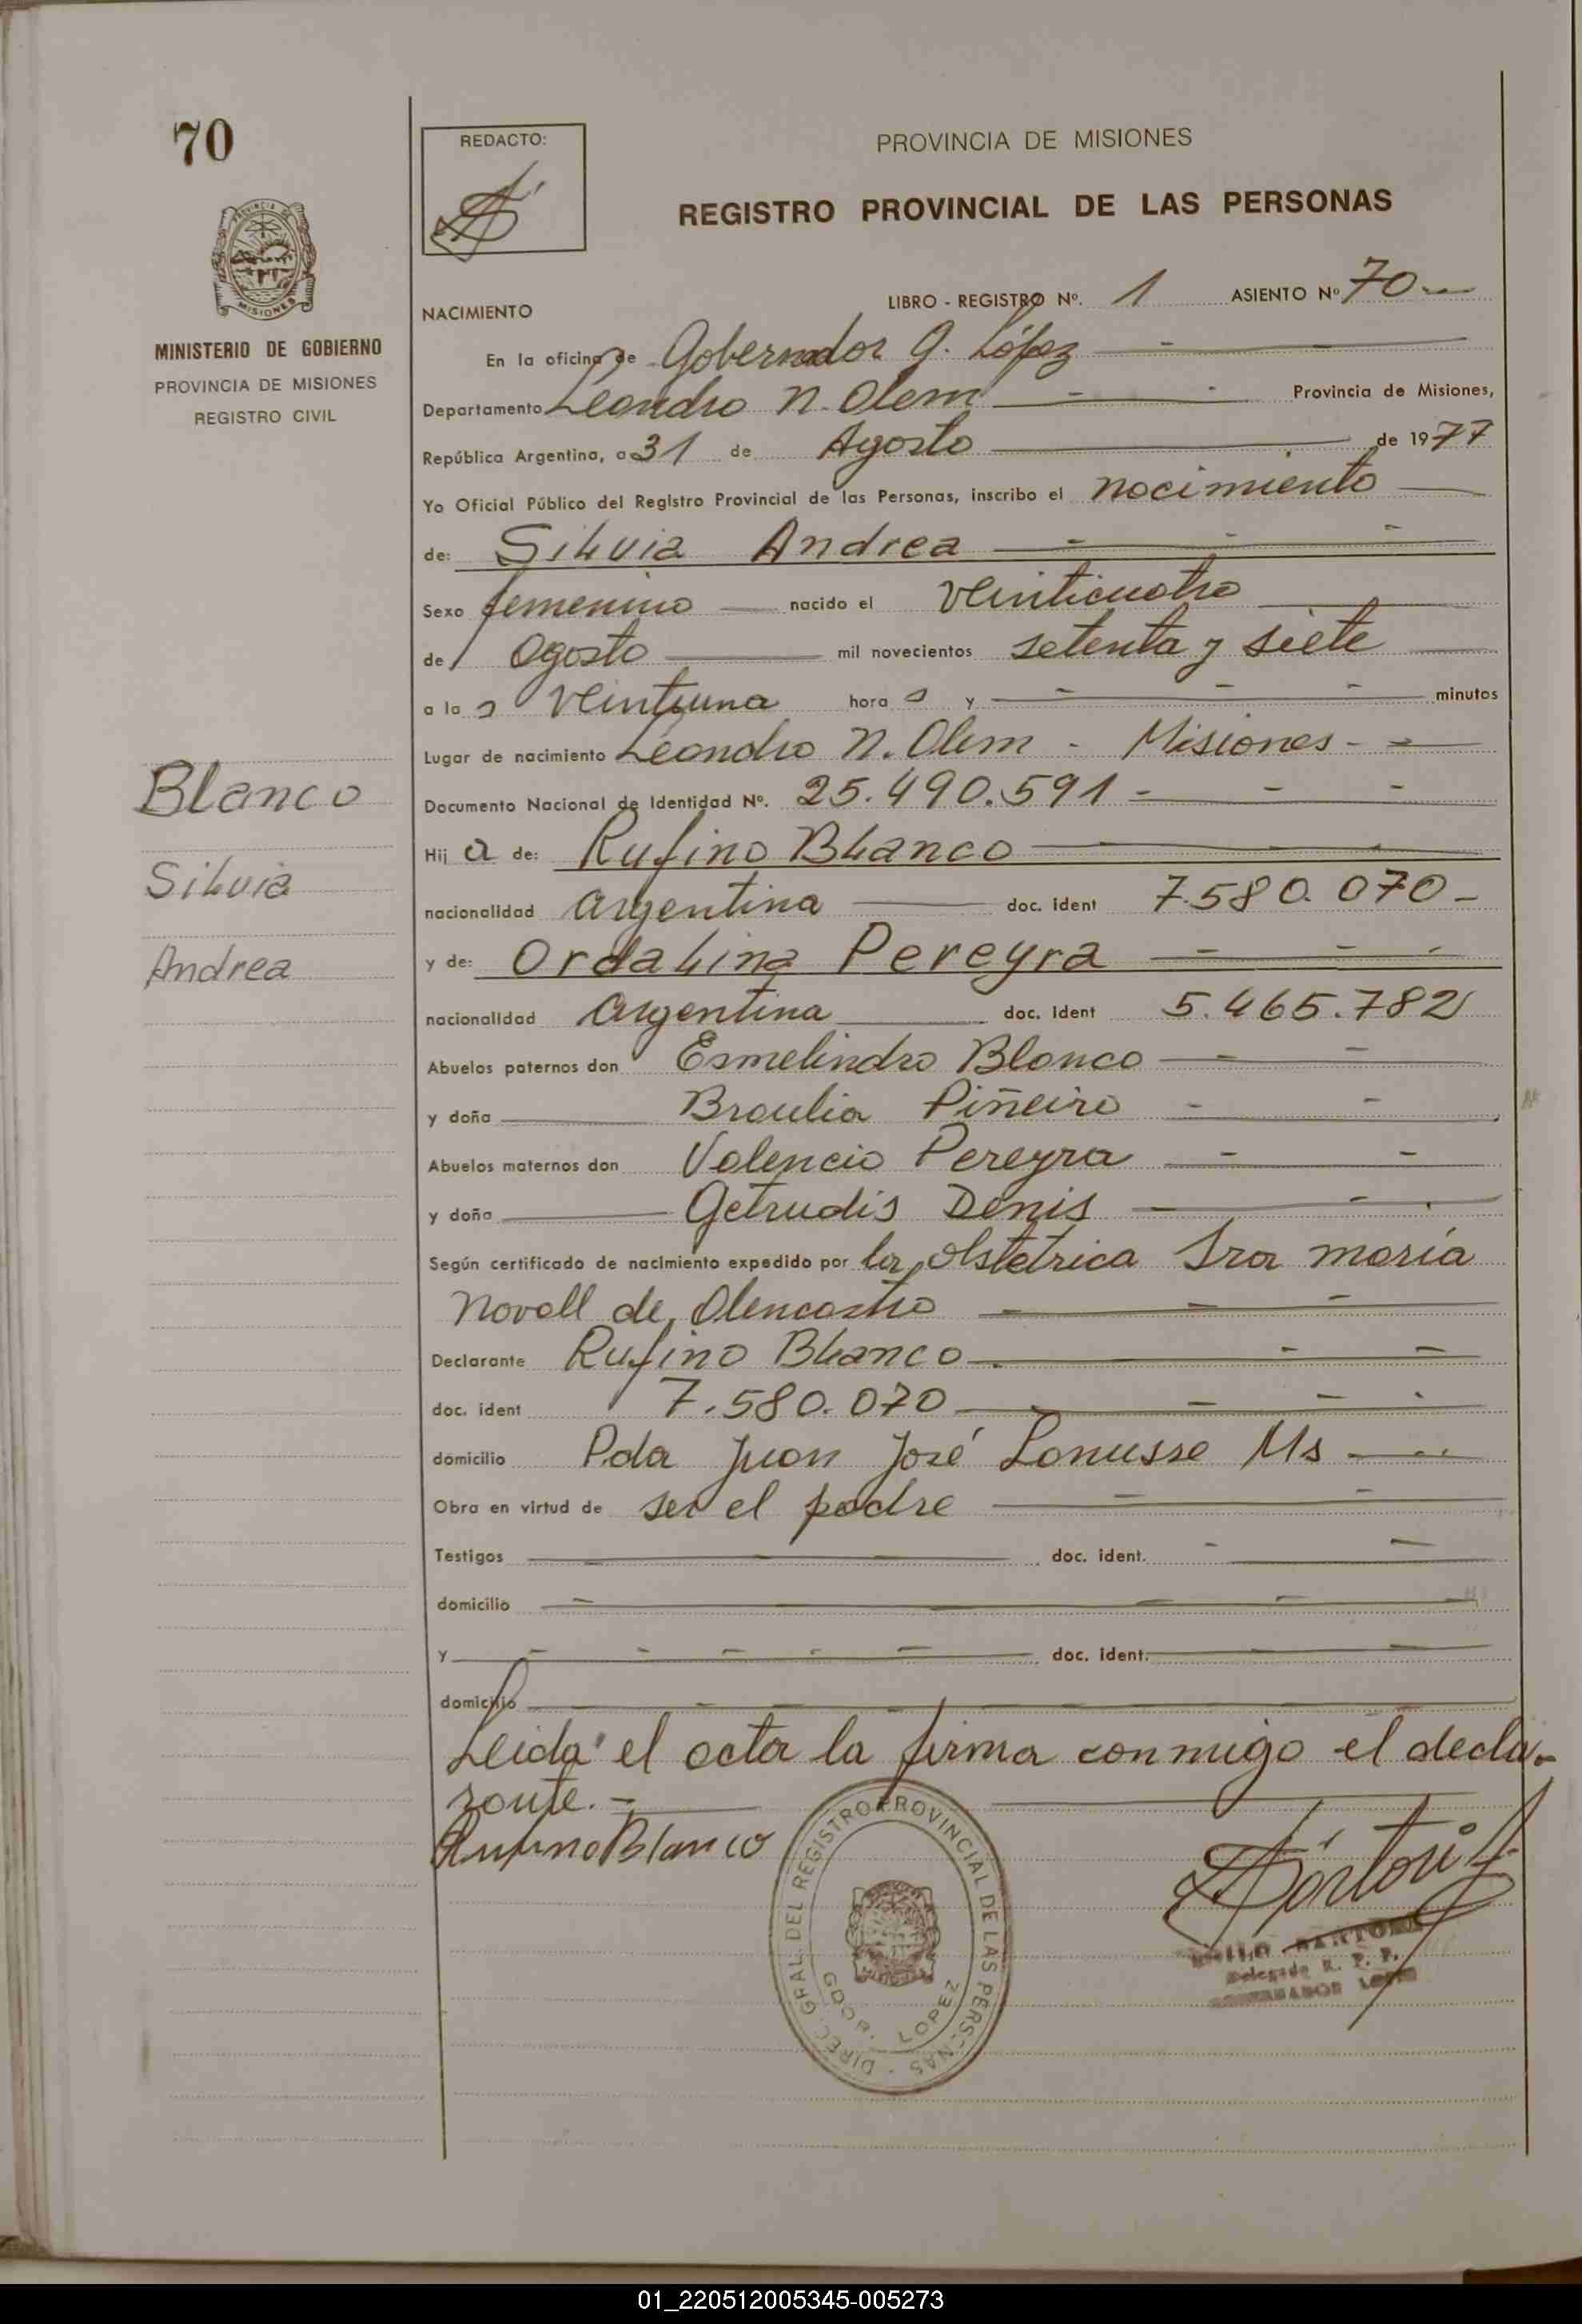 70
REDACTO:
PROVINCIA DE MISIONES
REGISTRO PROVINCIAL DE LAS PERSONAS
MINISTERIO DE GOBIERNO
PROVINCIA DE MISIONES
REGISTRO CIVIL
NACIMIENTO
LIBRO - REGISTRO Nº. 1 ASIENTO Nº 70
En la oficina de Gobernador G. López
Departamento Leandro N. Alem Provincia de Misiones,
República Argentina, a 31 de Agosto de 1977
Yo Oficial Público del Registro Provincial de las Personas, inscribo el nacimiento
de: Silvia Andrea
Sexo femenino nacido el veinticuatro
de agosto mil novecientos setenta y siete
a la s veintiuna hora s y minutos
Lugar de nacimiento Leandro N. Alem - Misiones
Documento Nacional de Identidad Nº. 25.490.591
Blanco
Silvia
Andrea
Hij a de: Rufino Blanco
nacionalidad argentina doc. ident 7.580.070
y de: Ordalina Pereyra
nacionalidad argentina doc. ident 5.465.782
Abuelos paternos don Esmelindro Blanco
y doña Braulia Piñeiro
Abuelos maternos don Valencio Pereyra
y doña Getrudis Denis
Según certificado de nacimiento expedido por la obstetrica Sra maría
Novall de Alencastro
Declarante Rufino Blanco
doc. ident 7.580.070
domicilio Pda Juan José Lanusse Ms
Obra en virtud de ser el padre
Testigos doc. ident.
domicilio
y doc. ident.
domicilio
Leida el acta la firma conmigo el decla-
rante.-
Rufino Blanco
DIREC. GRAL. DEL REGISTRO PROVINCIAL DE LAS PERSONAS
GDOR. LOPEZ
Delegado R. P. P.
GOBERNADOR LOPEZ
01_220512005345-005273